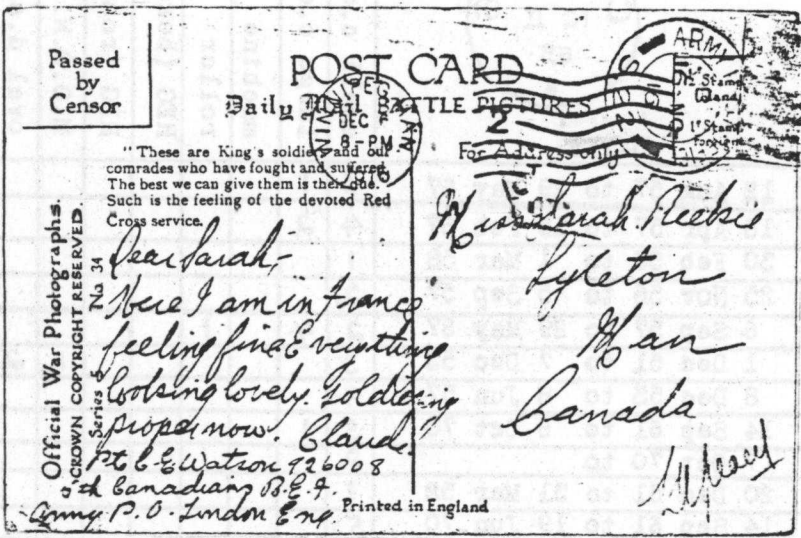 Passed
by
Censor
POST CARD
Daily Mail BATTLE PICTURES
WINNIPEG
DEC 6
8-PM
MAN
ARMY
2
For Address only
½ᵈ Stamp
Inland
1ᵈ Stamp
foreign
"These are King's soldiers and our
comrades who have fought and suffered.
The best we can give them is their due."
Such is the feeling of the devoted Red
Cross service.
Official War Photographs
CROWN COPYRIGHT RESERVED
Series 5 No 34
Dear Sarah,-
Here I am in France
feeling fine Everything
looking lovely. Soldiering
proper now. Claude
Pte C. E Watson 726008
Canadians B.E.F
Army P.O. London Eng
Miss Sarah Reekie
Lyleton
Man
Canada
Printed in England